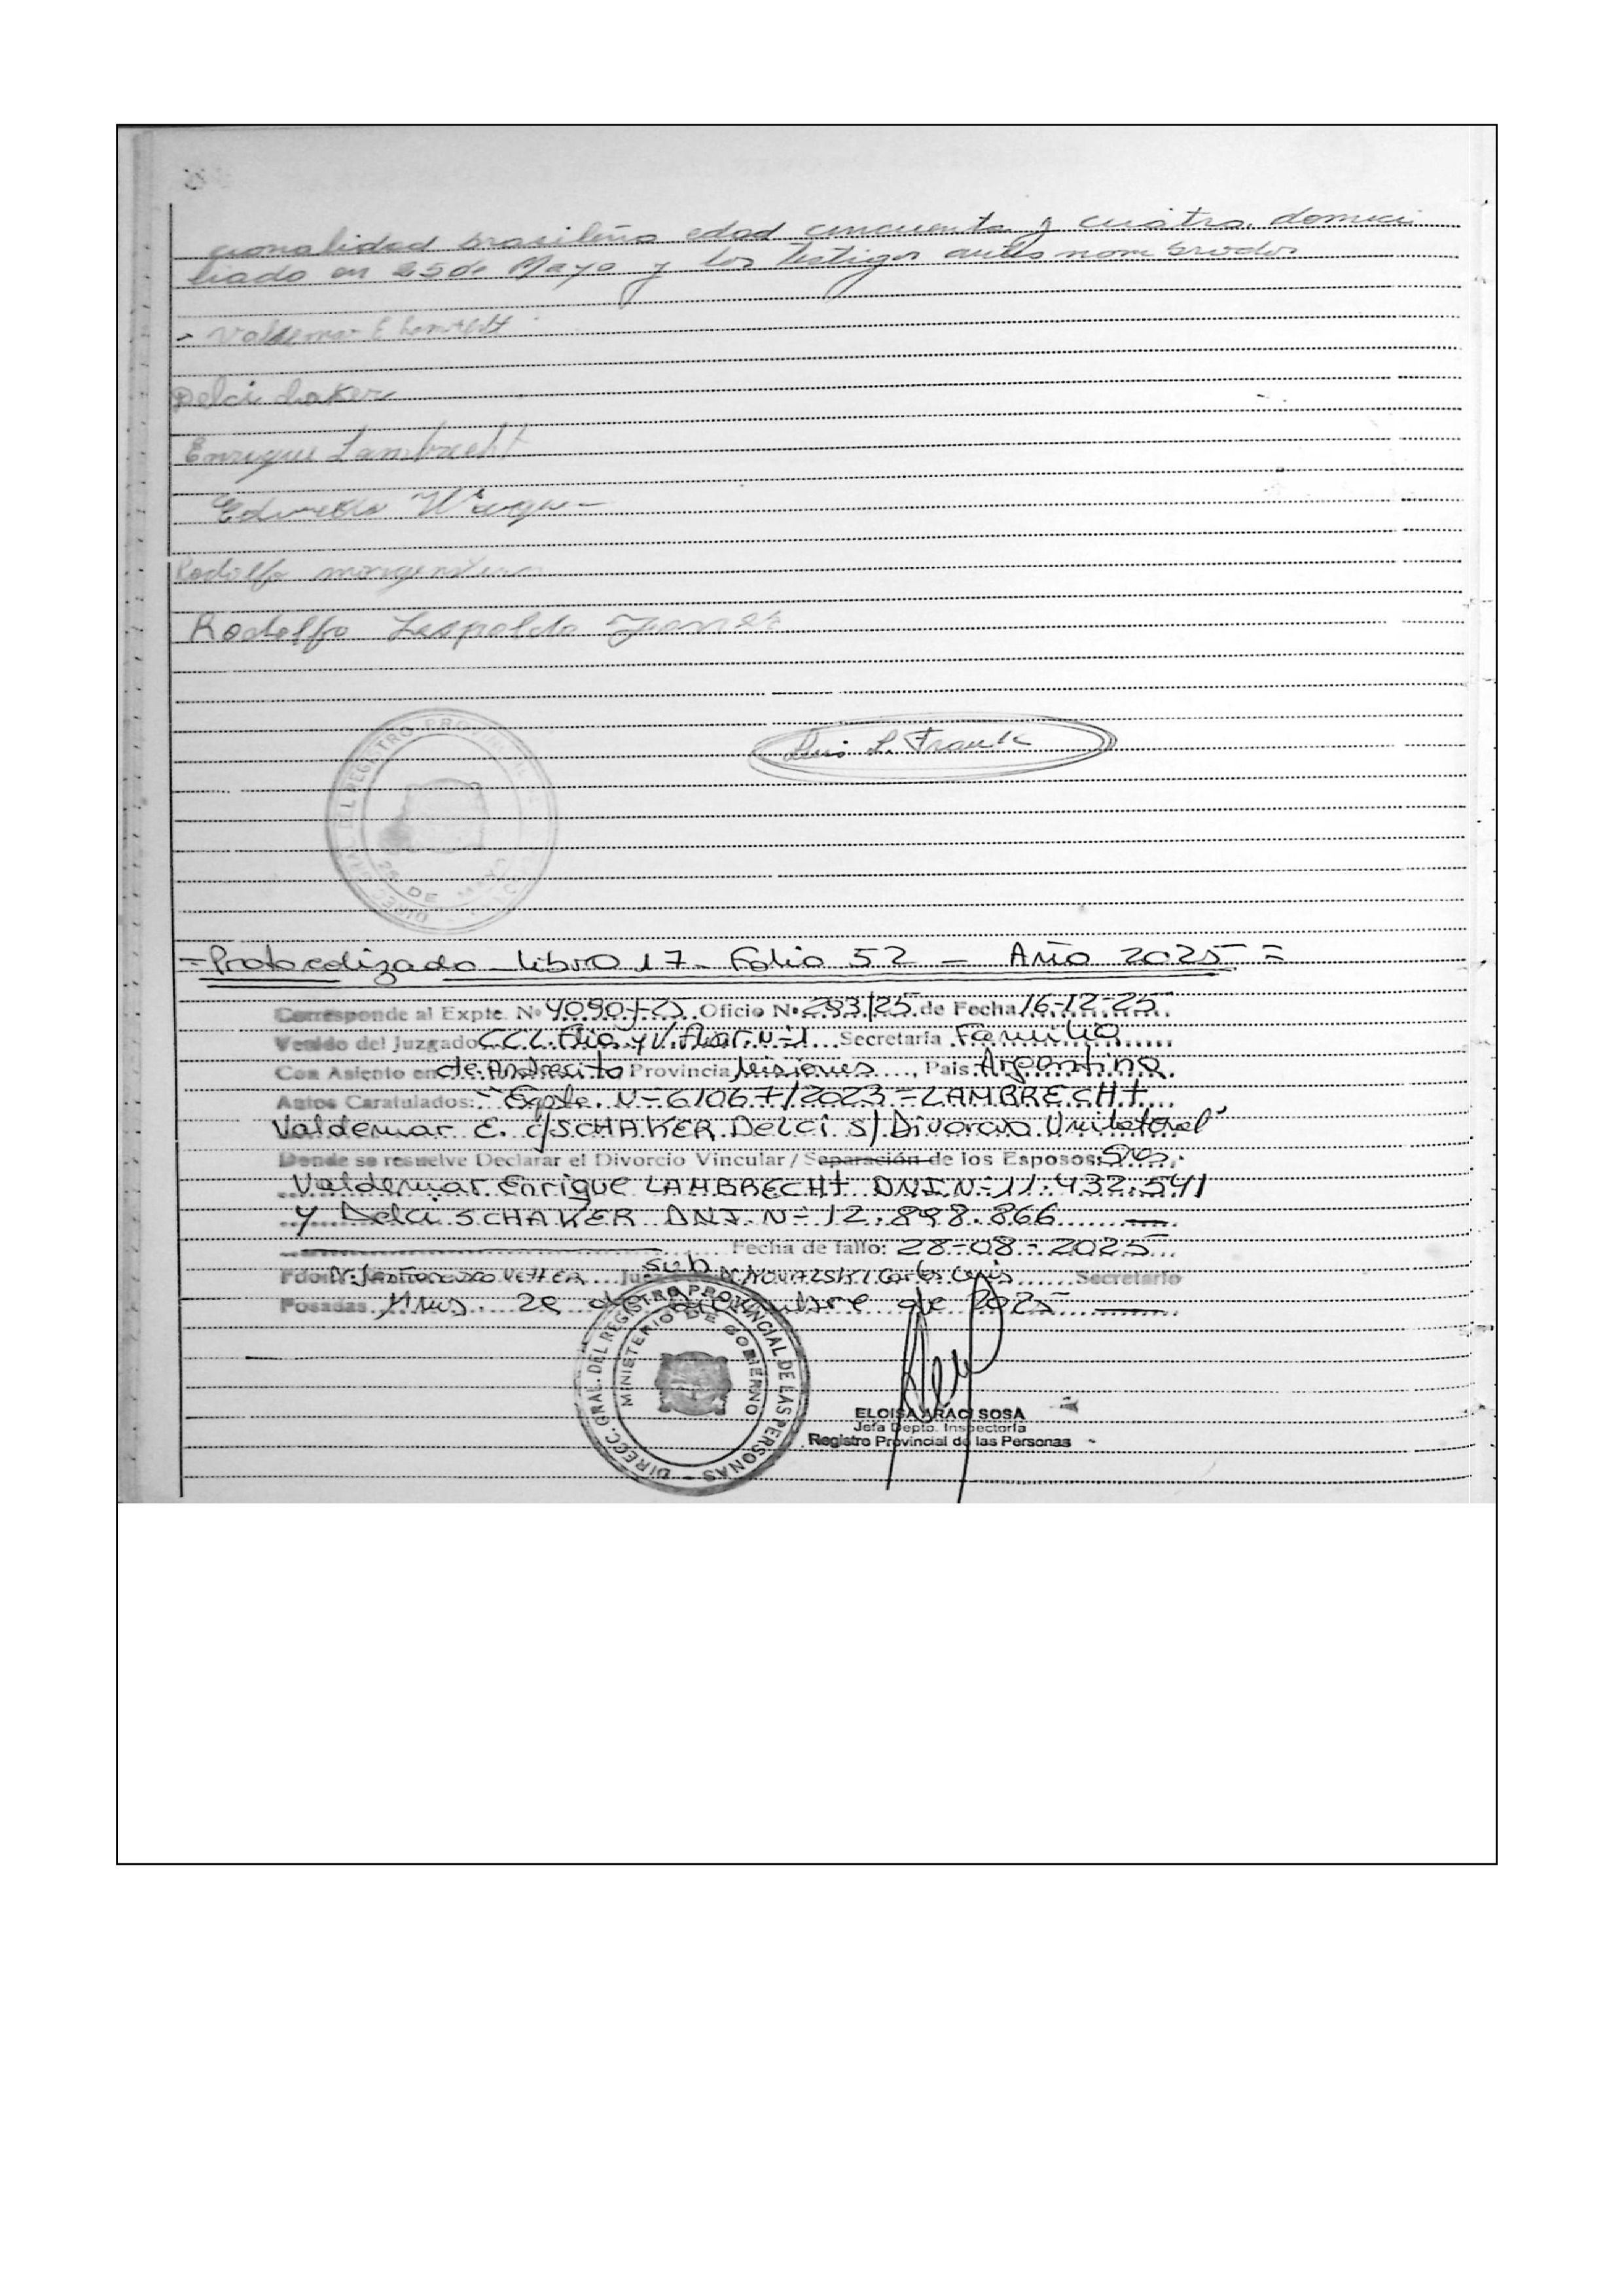 cionalidad brasileña edad cincuenta y cuatro. domici
liado en 25 de Mayo y los testigos antes nombrados
Valdemar E.
Delci
Enrique Lambrecht
Rodolfo
Rodolfo Leopoldo
Luis L. Frank
DE
=Protocolizado Libro 17 - Folio 52 - Año 2025=
Corresponde al Expte. Nº Oficio Nº 283/25 de Fecha 16-12-25
Venido del Juzgado C.C.L. Flia y V. Fliar. Nº 1 Secretaría Familia
Con Asiento en de Andresito Provincia Misiones, País Argentina.
Autos Caratulados: "Expte. Nº 61067/2023 = LAMBRECHt
Valdemar E. c/ SCHAKER Delci s/ Divorcio Unilateral"
Donde se resuelve Declarar el Divorcio Vincular / Separación de los Esposos: Srs.
Valdemar Enrique LAMBRECHt DNI Nº 11.432.541
y Delci SCHAKER DNI. Nº 12.898.866
Fecha de fallo: 28-08-2025
sub
Fdo. VETTER Juez Carlos Luis Secretario
Posadas, Mnes. de diciembre de 2025
DIRECC. GRAL. DEL REGISTRO PROVINCIAL DE LAS PERSONAS
MINISTERIO DE GOBIERNO
ELOISA ARACI SOSA
Jefa Depto. Inspectoría
Registro Provincial de las Personas